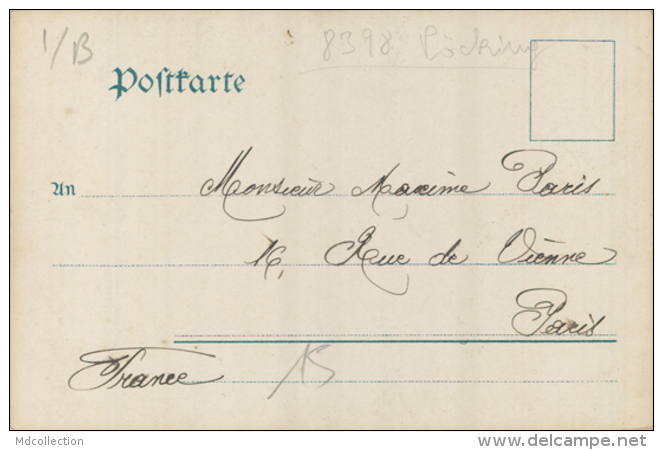 1/B
8398 Pöcking
Postkarte
An Monsieur Maxime Paris
16, Rue de Vienne
Paris
France
15
Mdcollection
www.delcampe.net